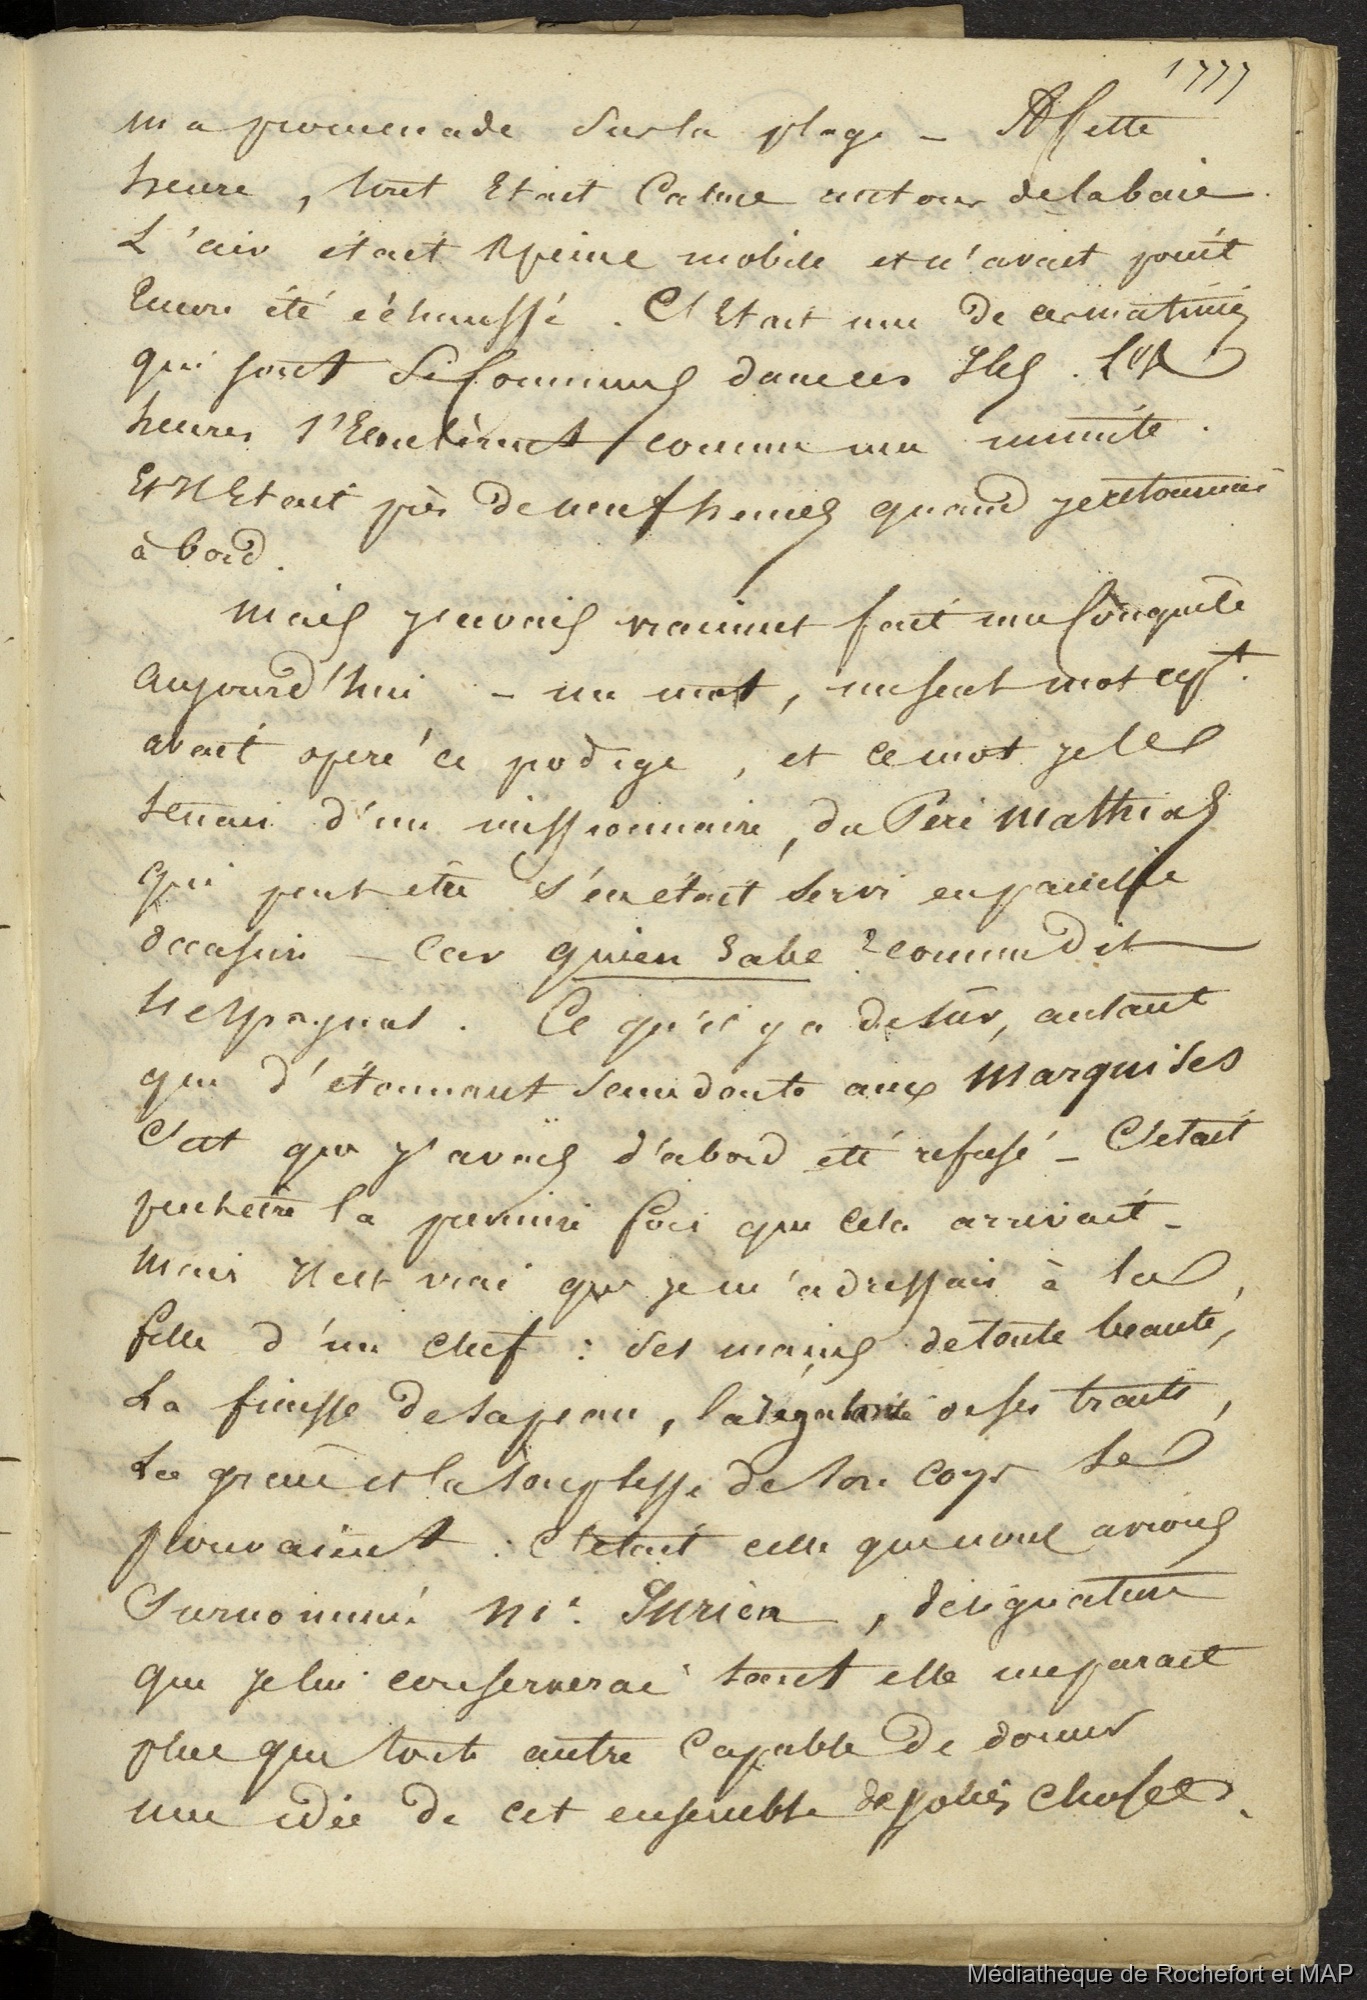 1777
ma promenade sur la plage – A Cette
heure, tout Etait Calme autour de la baie.
L'air était A peine mobile et n'avait point
Encore été échauffé. C'Etait une de ces matinées
qui sont Si Communes dans ces Iles. Les
heures s'Ecoulèrent comme une minute.
Et Il Etait près de neuf heures quand je retournai
à bord.
Mais j'avais vraiment fait une Conquête
aujourd'hui – un mot, un seul mot
avait operé ce prodige, et ce mot je le
tenais d'un missionnaire, du Père Mathias
qui peut être s'en était servi en pareille
occasion – Car quien Sabe ? comme dit
l'espagnol. Ce qu'il y a de sûr, autant
que d'étonnant sans doute aux Marquises
C'est que j'avais d'abord été refusé – C'etait
peut etre la première fois que cela arrivait –
Mais Il est vrai que je m'adressais à la
fille d'un chef : Ses mains de toute beauté,
La finesse de sa peau, la régularité de ses traits,
La grace et la souplesse de son corps le
prouvaient : C'etait celle que nous avions
Surnommé Mr. , désignation
que je lui conserverai tant elle me parait
plus que toute autre Capable De donner
une idée de cet ensemble de jolies choses.
Médiathèque de Rochefort et MAP